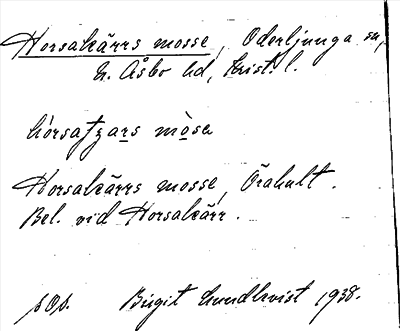 Horsakärrs mosse, Oderljunga sn,
N. Åsbo hd, Krist. l.
Horsakärrs mosse, Örahult.
Bel. vid Horsakärr.
Birgit Lundkvist 1938.